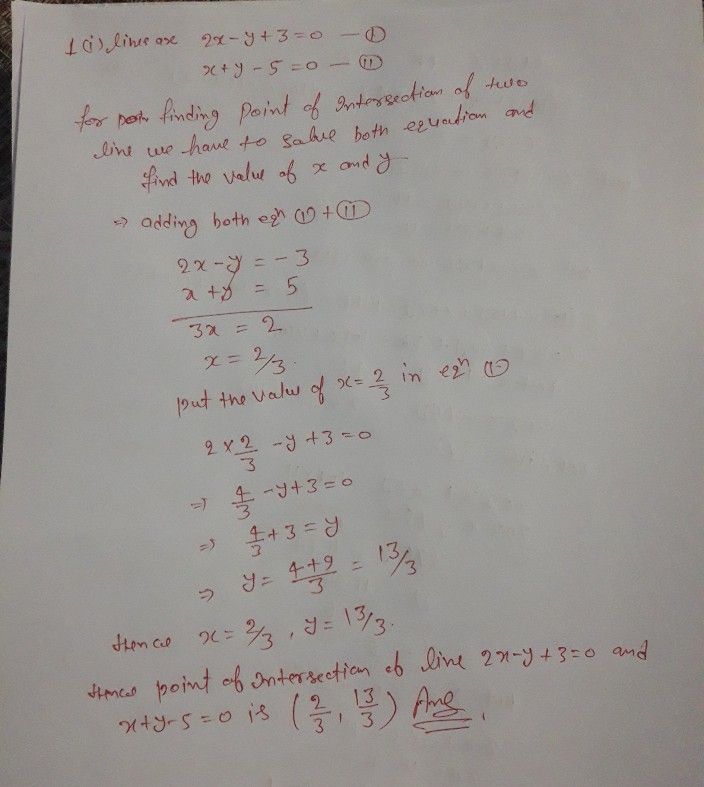 1(i) lines are 2x-y+3=0 — (I)
x+y-5=0 — (II)
for finding Point of Intersection of two
line we have to salve both equation and
find the value of x and y
⇒ adding both eqn (I)+(II)
2x-y = -3
x+y = 5
3x = 2
x = 2/3.
put the value of x= 2/3 in eqn (I)
2 × 2/3 - y + 3 = 0
⇒ 4/3 - y + 3 = 0
⇒ 4/3 + 3 = y
⇒ y = 4+9/3 = 13/3
Hence x = 2/3, y = 13/3.
Hence point of Intersection of line 2x-y+3=0 and
x+y-5=0 is (2/3, 13/3) Ans.